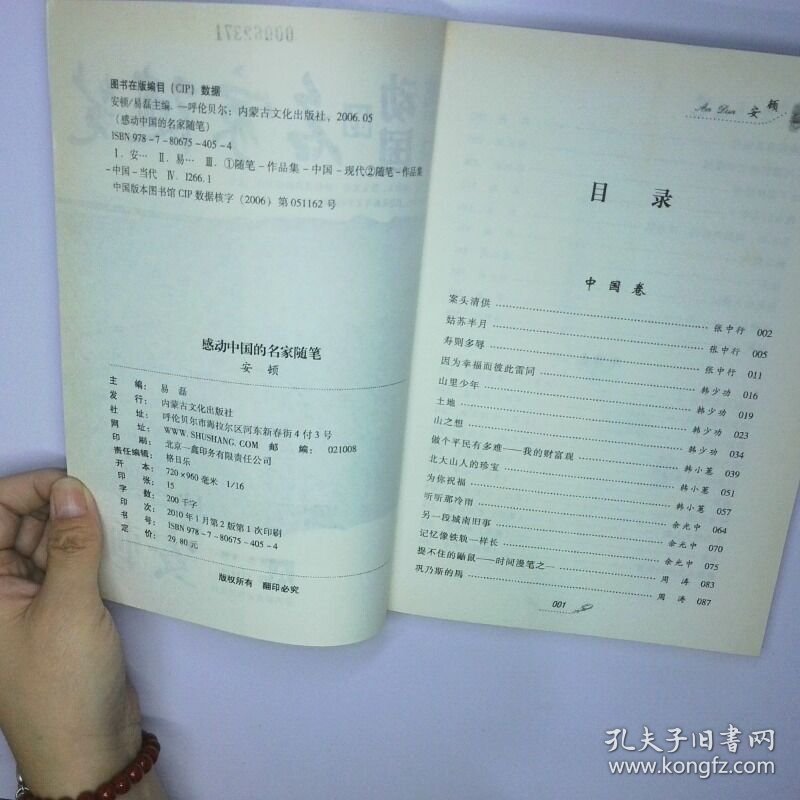 00089371
图书在版编目(CIP)数据
安顿/易磊主编.—呼伦贝尔:内蒙古文化出版社,2006.05
(感动中国的名家随笔)
ISBN 978-7-80675-405-4
Ⅰ.安… Ⅱ.易… Ⅲ.①随笔-作品集-中国-现代②随笔-作品集
-中国-当代 Ⅳ.I266.1
中国版本图书馆CIP数据核字(2006)第051162号
感动中国的名家随笔
安 顿
主 编: 易 磊
发 行: 内蒙古文化出版社
社 址: 呼伦贝尔市海拉尔区河东新春街4付3号
网 址: WWW.SHUSHANG.COM 邮 编: 021008
印 刷: 北京一鑫印务有限责任公司
责任编辑: 格日乐
开 本: 720×960毫米 1/16
印 张: 15
字 数: 200千字
印 次: 2010年1月第2版第1次印刷
书 号: ISBN 978-7-80675-405-4
定 价: 29.80元
版权所有 翻印必究
An Dun 安顿
目 录
中国卷
案头清供 张中行 002
姑苏半月 张中行 005
寿则多辱 张中行 011
因为幸福而彼此雷同 韩少功 016
山里少年 韩少功 019
土地 韩少功 023
山之想 韩少功 034
做个平民有多难——我的财富观 韩小蕙 039
北大山人的珍宝 韩小蕙 051
为你祝福 韩小蕙 057
听听那冷雨 余光中 064
另一段城南旧事 余光中 070
记忆像铁轨一样长 余光中 075
捉不住的鼬鼠——时间漫笔之一 周 涛 083
巩乃斯的马 周 涛 087
001
孔夫子旧书网
www.kongfz.com